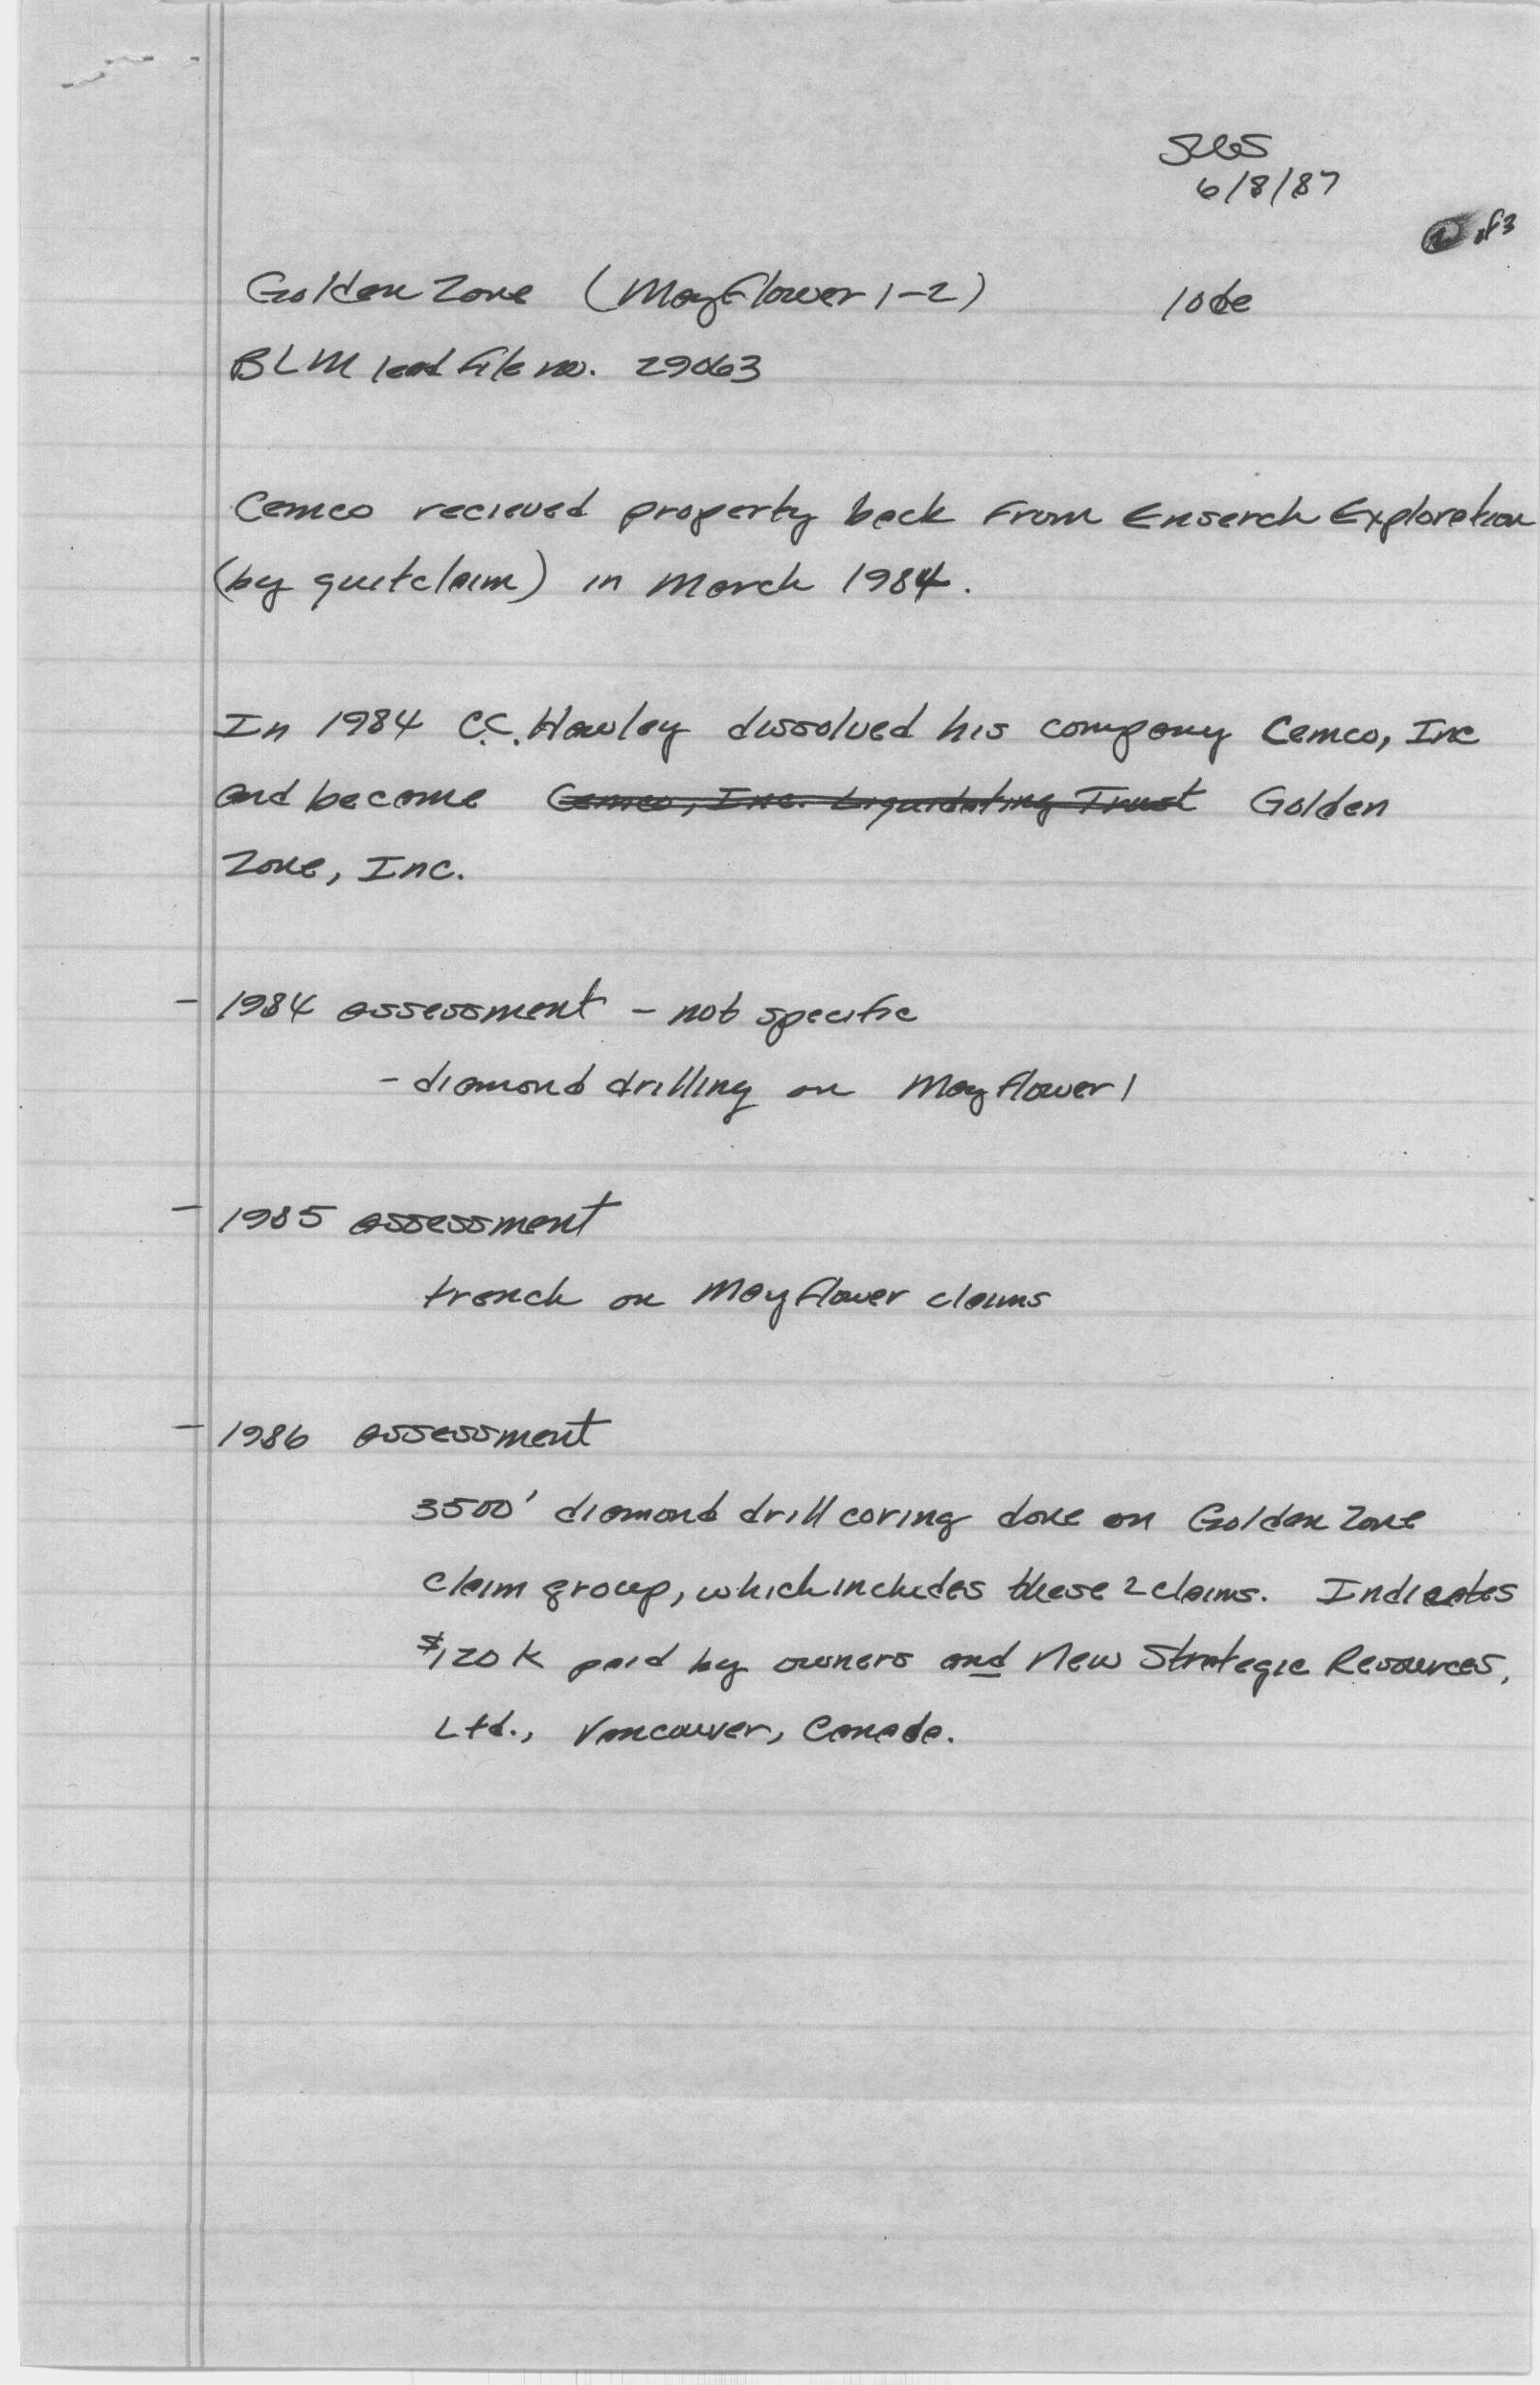 6/8/87
of 3
Golden Zone (Mayflower 1-2) lode
BLM lead file no. 29063
Cemco recieved property back from Enserch Exploration
(by quitclaim) in March 1984.
In 1984 C.C. Hawley dissolved his company Cemco, Inc
and became Cemco, Inc. Liquidating Trust Golden
Zone, Inc.
- 1984 assessment - not specific
- diamond drilling on Mayflower 1
- 1985 assessment
trench on Mayflower claims
- 1986 assessment
3500' diamond drill coring done on Golden Zone
claim group, which includes these 2 claims. Indicates
$120K paid by owners and New Strategic Resources,
Ltd., Vancouver, Canada.